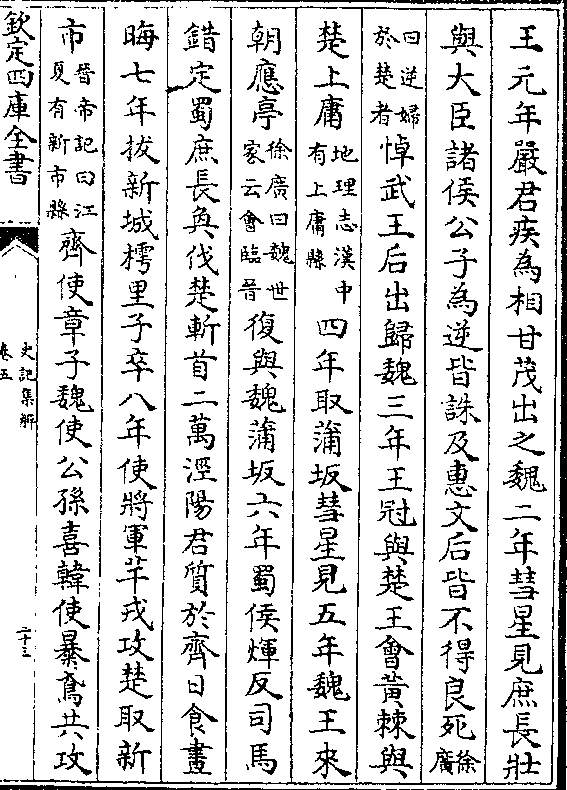 王元年嚴君疾為相甘茂出之魏二年彗星見庶長壯
與大臣諸侯公子為逆皆誅及惠文后皆不得良死徐廣
曰逆婦於楚者悼武王后出歸魏三年王冠與楚王會黃棘與
楚上庸地理志漢中有上庸縣四年取蒲坂彗星見五年魏王來
朝應亭徐廣曰魏世家云會臨晉復與魏蒲坂六年蜀侯煇反司馬
錯定蜀庶長奐伐楚斬首二萬涇陽君質於齊日食晝
晦七年拔新城樗里子卒八年使將軍芊戎攻楚取新
市晉帝記曰江夏有新市縣齊使章子魏使公孫喜韓使暴鳶共攻
欽定四庫全書
史記集解
卷五
二十三